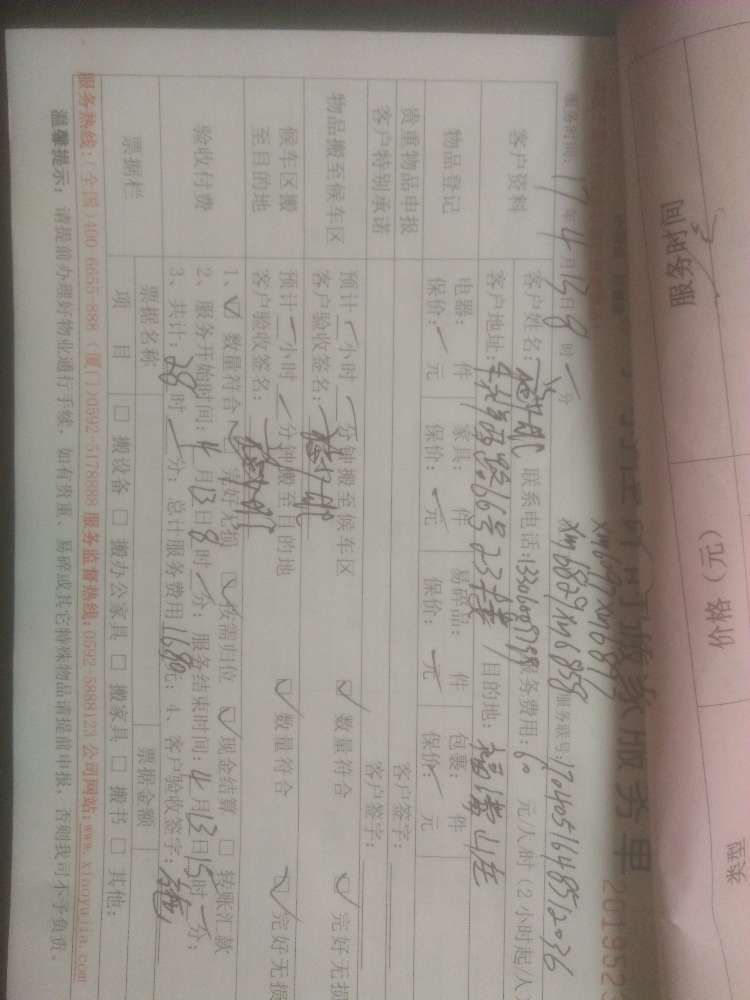 搬家服务单
201952
xm6097 xm6895
xm6829 xm6858
服务时间: 17年4月13日8时一分
服务账号: 1704051648512036
客户资料
客户姓名:
联系电话:
服务费用: 60 元/人/时 (2小时起/人
客户地址:
目的地:
物品登记
电器: 件 家具: 件 易碎品: 件 包裹: 件
保价: 一元 保价: 一元 保价: 一元 保价: 一元
贵重物品申报
客户签字:
客户特别承诺
客户签字:
物品搬至候车区
预计一小时 一分钟搬至候车区 ✓数量符合 ✓完好无损
客户验收签名:
候车区搬至目的地
预计一小时 一分钟搬至目的地 ✓数量符合 ✓完好无损
客户验收签名:
验收付费
1、✓数量符合 ✓完好无损 ✓按需归位 ✓现金结算 □转账汇款
2、服务开始时间: 4月13日8时一分; 服务结束时间: 4月13日15时一分;
3、共计: 28时一分; 总计服务费用1680元; 4、客户验收签字:
票据栏
票据名称
票据金额
项目 □搬设备 □搬办公家具 □搬家具 □搬书 □其他:
服务热线:(全国)400 6655-888 (厦门)0592-5178888 服务监督热线:0592-5888123 公司网站:www.xiaoyujia.com
温馨提示: 请提前办理好物业通行手续, 如有贵重、易碎或其它特殊物品请提前申报, 否则我司不予负责。
服务时间
价格(元)
类型